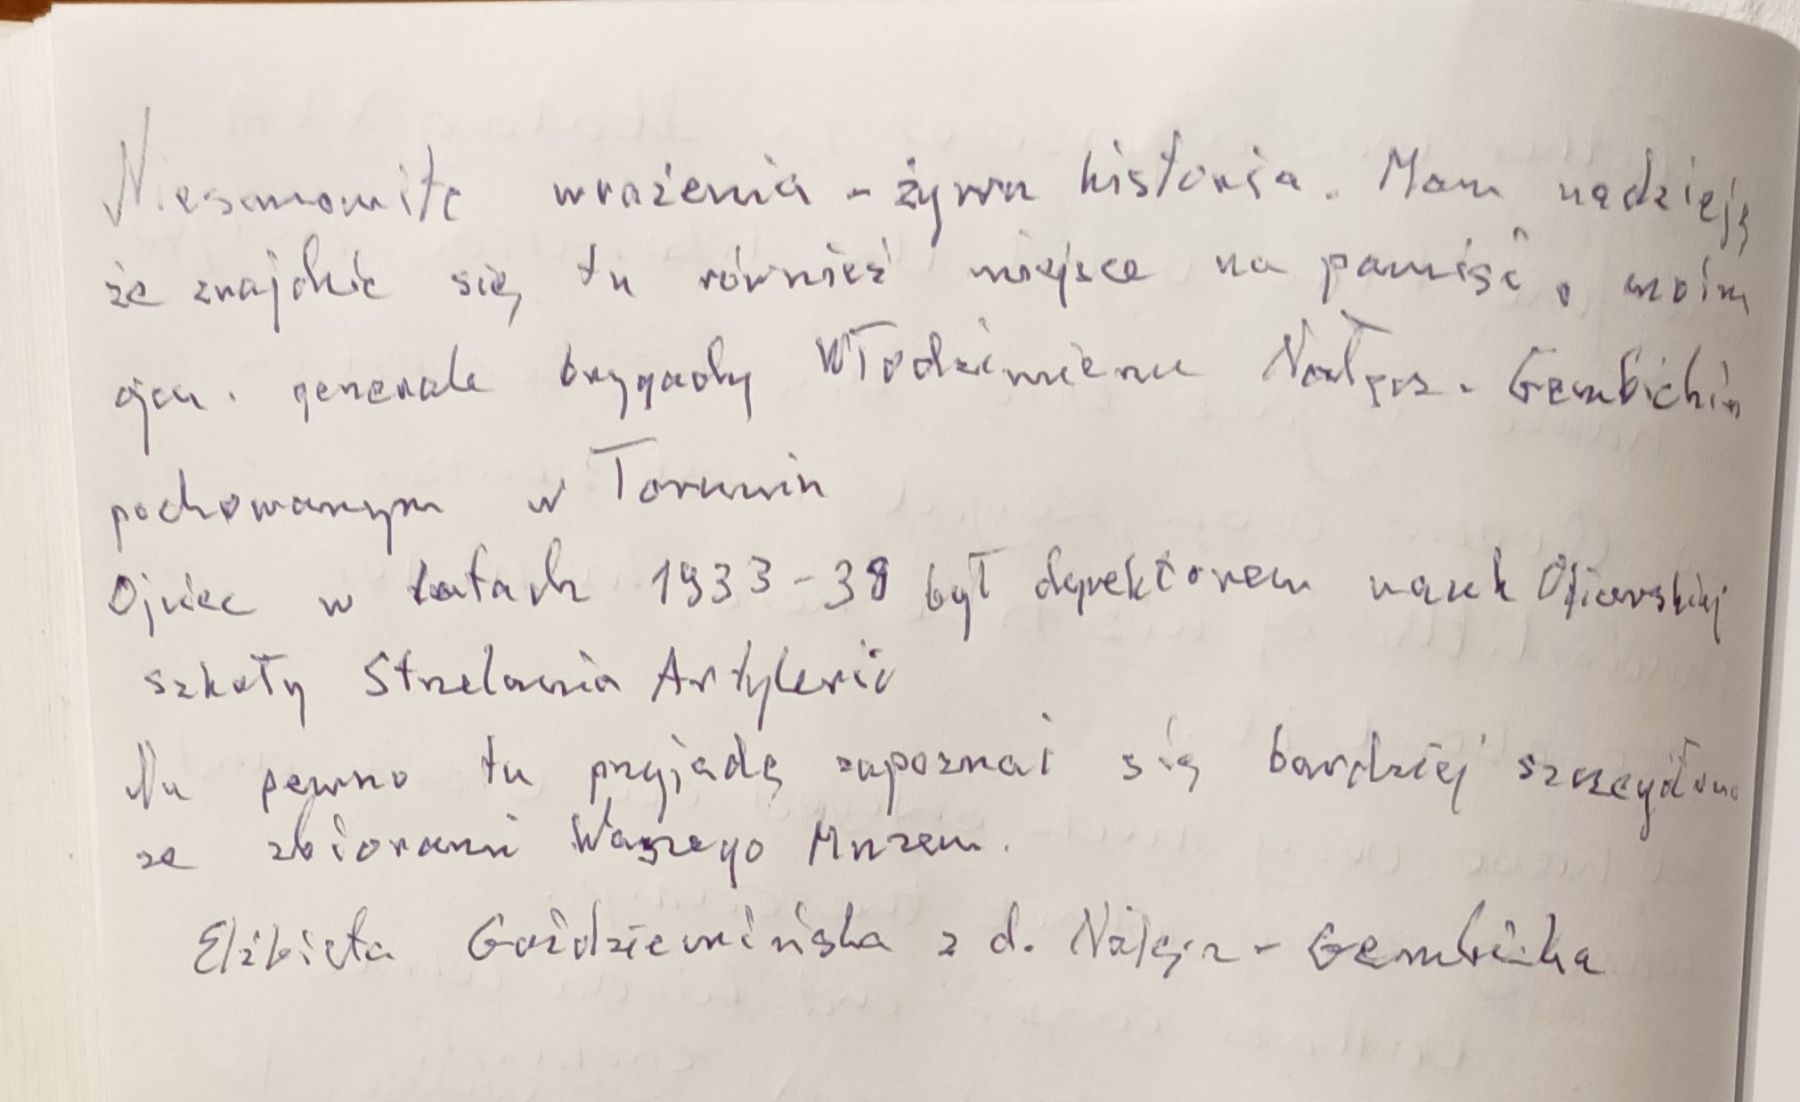 Niesamowite wrażenia - żywa historia. Mam nadzieję
że znajdzie się tu również miejsce na pamięć o moim
ojcu. generale brygady Włodzimierzu Nałęcz-Gembickim
pochowanym w Toruniu
Ojciec w latach 1933-38 był dyrektorem nauk Oficerskiej
szkoły Strzelania Artylerii
Na pewno tu przyjadę zapoznać się bardziej szczegółowo
ze zbiorami Waszego Muzeum.
Elżbieta Goździewińska z d. Nałęcz-Gembicka